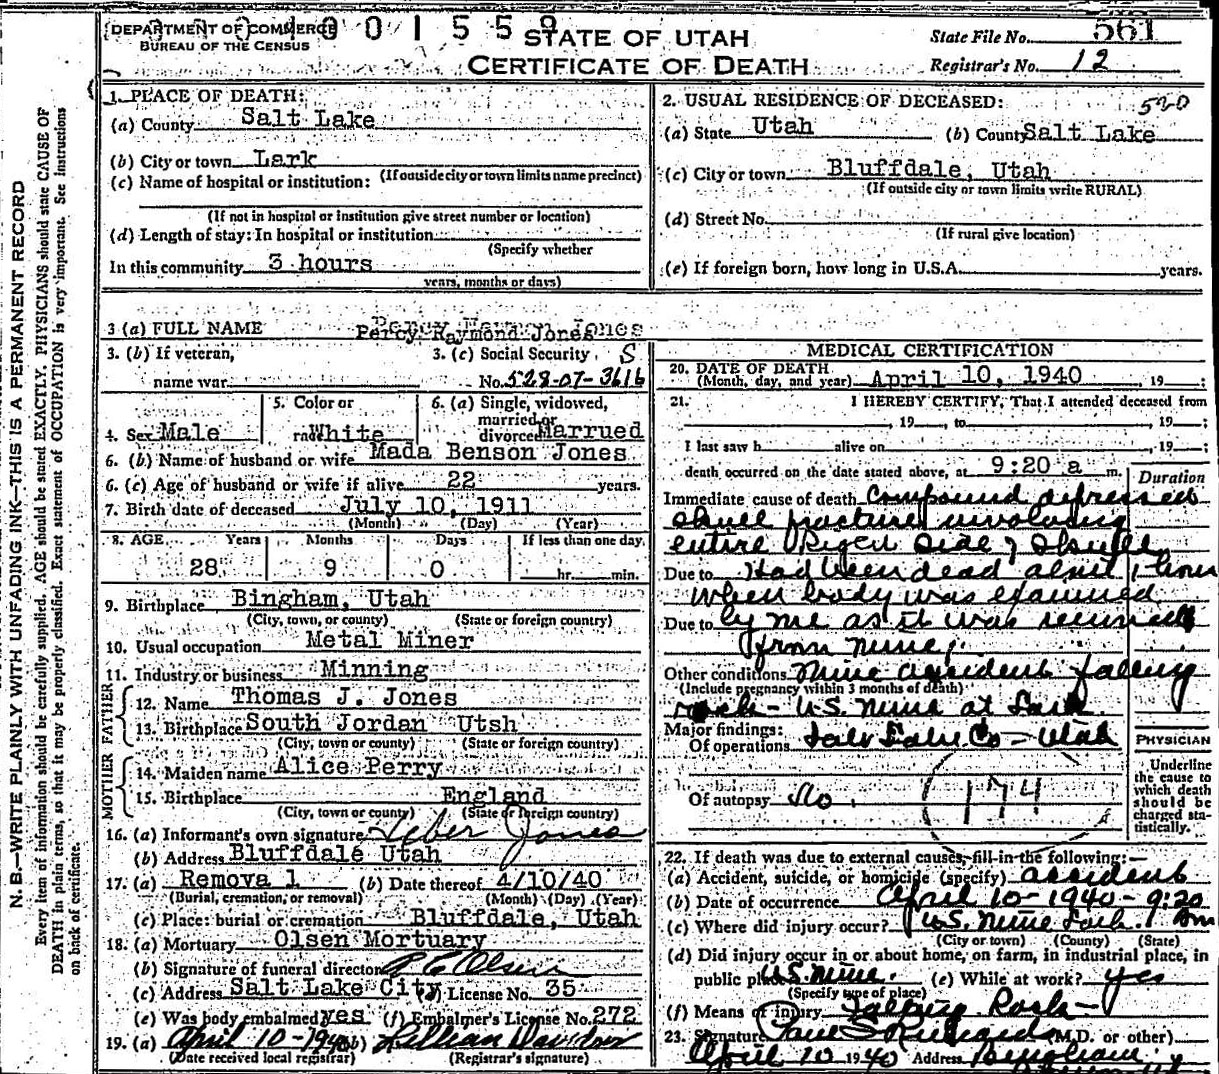 DEPARTMENT OF COMMERCE
BUREAU OF THE CENSUS
0 0 1 5 5 9
STATE OF UTAH
CERTIFICATE OF DEATH
State File No. 561
Registrar's No. 12
N. B.—WRITE PLAINLY WITH UNFADING INK—THIS IS A PERMANENT RECORD
Every item of information should be carefully supplied. AGE should be stated EXACTLY. PHYSICIANS should state CAUSE OF
DEATH in plain terms, so that it may be properly classified. Exact statement of OCCUPATION is very important. See instructions
on back of certificate.
1. PLACE OF DEATH:
(a) County Salt Lake
(b) City or town Lark
(If outside city or town limits name precinct)
(c) Name of hospital or institution:
(If not in hospital or institution give street number or location)
(d) Length of stay: In hospital or institution
(Specify whether
In this community 3 hours
years, months or days)
2. USUAL RESIDENCE OF DECEASED: 520
(a) State Utah (b) County Salt Lake
(c) City or town Bluffdale, Utah
(If outside city or town limits write RURAL)
(d) Street No.
(If rural give location)
(e) If foreign born, how long in U.S.A. years.
3 (a) FULL NAME Percy Raymond Jones
3. (b) If veteran,
name war
3. (c) Social Security S
No. 528-07-3616
4. Sex Male
5. Color or
race White
6. (a) Single, widowed,
married or
divorced Marrued
6. (b) Name of husband or wife Mada Benson Jones
6. (c) Age of husband or wife if alive 22 years.
7. Birth date of deceased July 10, 1911
(Month) (Day) (Year)
8. AGE Years Months Days If less than one day
28 9 0 hr. min.
9. Birthplace Bingham, Utah
(City, town, or county) (State or foreign country)
10. Usual occupation Metal Miner
11. Industry or business Minning
FATHER
12. Name Thomas J. Jones
13. Birthplace South Jordan Utsh
(City, town or county) (State or foreign country)
MOTHER
14. Maiden name Alice Perry
15. Birthplace England
(City, town or county) (State or foreign country)
16. (a) Informant's own signature Heber Jones
(b) Address Bluffdale Utah
17. (a) Remova l (b) Date thereof 4/10/40
(Burial, cremation, or removal) (Month) (Day) (Year)
(c) Place: burial or cremation Bluffdale, Utah
18. (a) Mortuary Olsen Mortuary
(b) Signature of funeral director Olsen
(c) Address Salt Lake City (d) License No. 35
(e) Was body embalmed yes (f) Embalmer's License No. 272
19. (a) April 10-1940 (b) Lillian Davidson
(Date received local registrar) (Registrar's signature)
MEDICAL CERTIFICATION
20. DATE OF DEATH
(Month, day, and year) April 10, 1940, 19 ;
21. I HEREBY CERTIFY, That I attended deceased from
, 19 , to , 19 ;
I last saw h alive on , 19 ;
death occurred on the date stated above, at 9:20 a m.
Duration
Immediate cause of death Compound depressed
skull fracture involving
entire Right side of skull
Due to Had been dead about 1 hour
when body was examined
Due to by me as it was received
from mine.
Other conditions Mine accident falling
(Include pregnancy within 3 months of death)
rock - U.S. Mine at Lark
Major findings:
Of operations Salt Lake Co - Utah
174
Of autopsy No.
PHYSICIAN
Underline
the cause to
which death
should be
charged sta-
tistically.
22. If death was due to external causes, fill in the following:—
(a) Accident, suicide, or homicide (specify) accident
(b) Date of occurrence April 10-1940-9:20 Am
(c) Where did injury occur? U.S. Mine Lark
(City or town) (County) (State)
(d) Did injury occur in or about home, on farm, in industrial place, in
public place U.S. Mine. (e) While at work? yes
(Specify type of place)
(f) Means of injury Falling Rock-
23. Signature Paul S. Richards (M.D. or other)
April 10 1940 Address Bingham